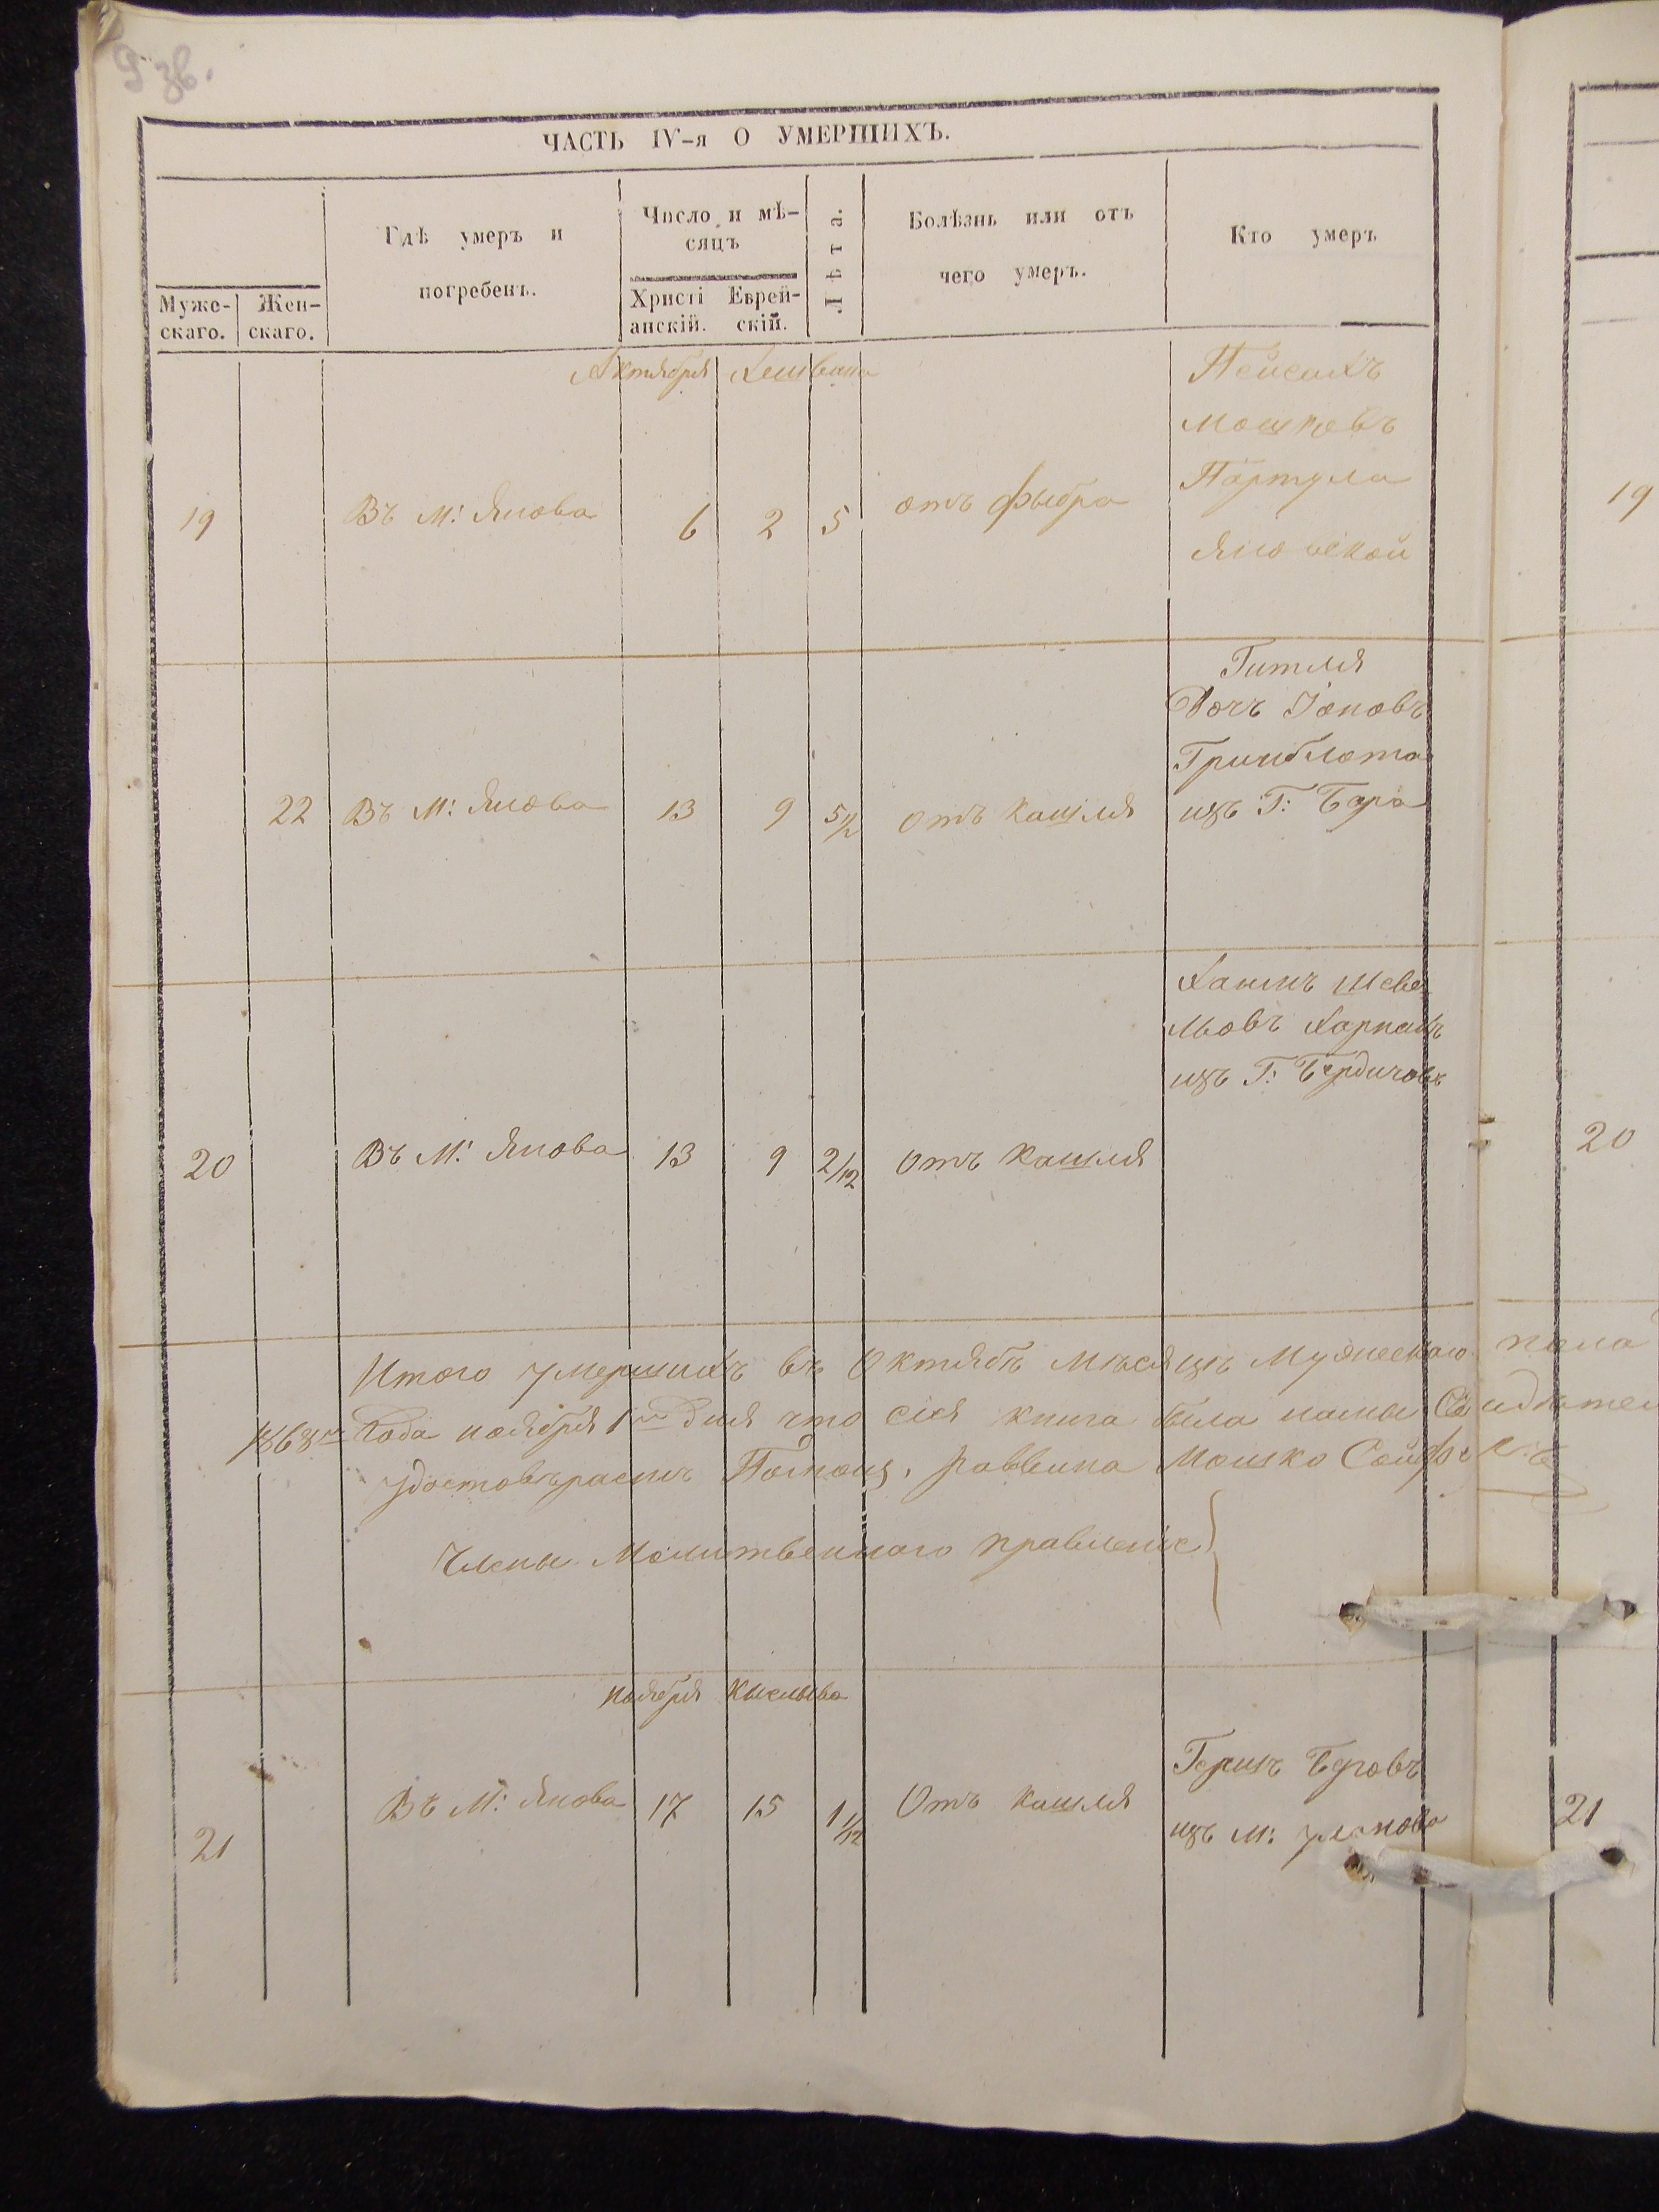 9 зв.
ЧАСТЬ IV-я О УМЕРШИХЪ.
Муже-
скаго.
Жен-
скаго.
Гдѣ умеръ и
погребенъ.
Число и мѣ-
сяцъ
Христі
анскій.
Еврей-
скій.
Лѣта.
Болѣзнь или отъ
чего умеръ.
Кто умеръ
Октября Хешвана
19 Въ М: Янова 6 2 5 отъ фыбра
Пейсахъ
Мошковъ
Портула
Яновской
19
22 Въ М: Янова 13 9 5/12 отъ Кашля
Гитля
Дочъ Іоновъ
Гринблота
изъ Г: Бара
20 Въ М: Янова 13 9 2/12 Отъ Кашля
Хаимъ Шеве
льовъ Харпакъ
изъ Г: Бердичовъ
20
Итого умершихъ въ Октябрѣ Мѣсяцѣ Мужескаго пола
1868го Года ноября 1го Дня что сія книга била нами Свидѣтел
удостовѣраемъ Раввина Мошко
Члены Молитвеннаго правленіе
ноября Кыслыва
21 Въ М: Янова 17 15 1 1/12 Отъ Кашля
Гершъ Беровъ
изъ М: Уланова
21